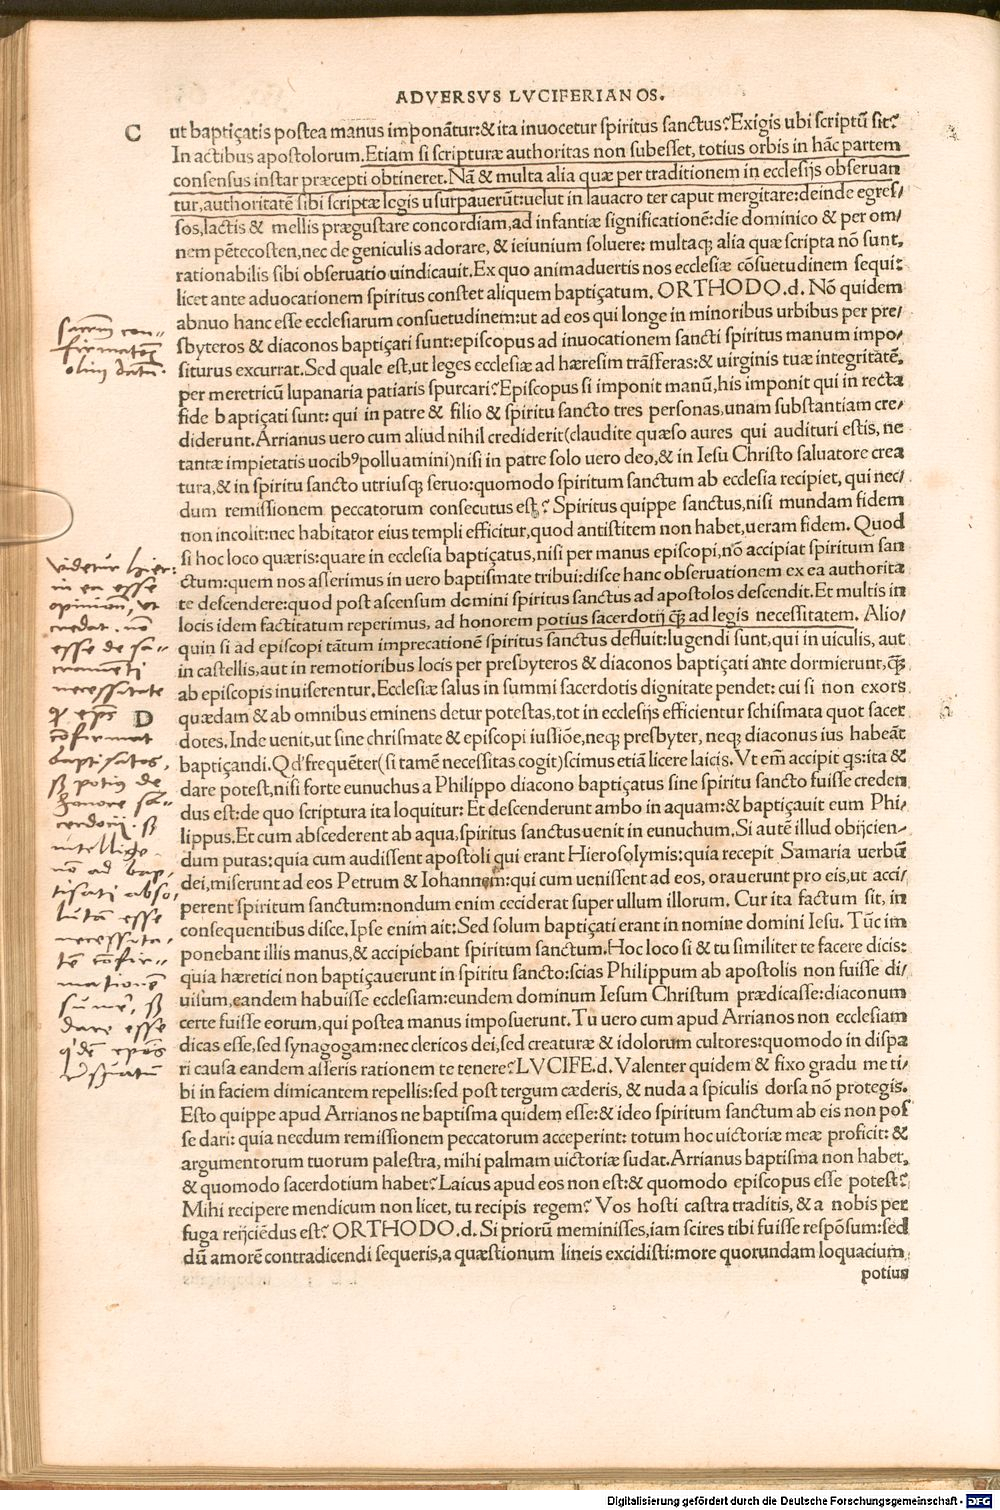 ADVERSVS LVCIFERIANOS.
C
ut baptiçatis postea manus imponãtur:& ita inuocetur spiritus sanctus? Exigis ubi scriptũ sit?
In actibus apostolorum. Etiam si scripturæ authoritas non subesset, totius orbis in hãc partem
consensus instar præcepti obtineret. Nã & multa alia quæ per traditionem in ecclesijs obseruan
tur, authoritatẽ sibi scriptæ legis usurpauerũt: uelut in lauacro ter caput mergitare: deinde egres/
sos, lactis & mellis prægustare concordiam, ad infantiæ significationẽ: die dominico & per om/
nem pẽtecosten, nec de geniculis adorare, & ieiunium soluere: multaqꝫ alia quæ scripta nõ sunt,
rationabilis sibi obseruatio uindicauit. Ex quo animaduertis nos ecclesiæ cõsuetudinem sequi:
licet ante aduocationem spiritus constet aliquem baptiçatum. ORTHODO.d. Nõ quidem
abnuo hanc esse ecclesiarum consuetudinem: ut ad eos qui longe in minoribus urbibus per pre/
sbyteros & diaconos baptiçati sunt: episcopus ad inuocationem sancti spiritus manum impo/
siturus excurrat. Sed quale est, ut leges ecclesiæ ad hæresim trãsferas: & uirginis tuæ integritatẽ,
per meretricũ lupanaria patiaris spurcari? Episcopus si imponit manũ, his imponit qui in recta
fide baptiçati sunt: qui in patre & filio & spiritu sancto tres personas, unam substantiam cre/
diderunt. Arrianus uero cum aliud nihil crediderit (claudite quæso aures qui audituri estis, ne
tantæ impietatis uocibꝰ polluamini) nisi in patre solo uero deo, & in Iesu Christo saluatore crea
tura, & in spiritu sancto utriusqꝫ seruo: quomodo spiritum sanctum ab ecclesia recipiet, qui nec/
dum remissionem peccatorum consecutus est? Spiritus quippe sanctus, nisi mundam fidem
non incolit: nec habitator eius templi efficitur, quod antistitem non habet, ueram fidem. Quod
si hoc loco quæris: quare in ecclesia baptiçatus, nisi per manus episcopi, nõ accipiat spiritum san
ctum: quem nos asserimus in uero baptismate tribui: disce hanc obseruationem ex ea authorita
te descendere: quod post ascensum domini spiritus sanctus ad apostolos descendit. Et multis in
locis idem factitatum reperimus, ad honorem potius sacerdotij qꝫ̃ ad legis necessitatem. Alio/
quin si ad episcopi tãtum imprecationẽ spiritus sanctus defluit: lugendi sunt, qui in uiculis, aut
in castellis, aut in remotioribus locis per presbyteros & diaconos baptiçati ante dormierunt, qꝫ̃
ab episcopis inuiserentur. Ecclesiæ salus in summi sacerdotis dignitate pendet: cui si non exors
D
quædam & ab omnibus eminens detur potestas, tot in ecclesijs efficientur schismata quot sacer
dotes. Inde uenit, ut sine chrismate & episcopi iussiõe, neqꝫ presbyter, neqꝫ diaconus ius habeãt
baptiçandi. Qd' frequẽter (si tamẽ necessitas cogit) scimus etiã licere laicis. Vt em̃ accipit qs: ita &
dare potest, nisi forte eunuchus a Philippo diacono baptiçatus sine spiritu sancto fuisse creden
dus est: de quo scriptura ita loquitur: Et descenderunt ambo in aquam: & baptiçauit eum Phi/
lippus. Et cum abscederent ab aqua, spiritus sanctus uenit in eunuchum. Si autẽ illud obijcien/
dum putas: quia cum audissent apostoli qui erant Hierosolymis: quia recepit Samaria uerbũ
dei, miserunt ad eos Petrum & Iohannem: qui cum uenissent ad eos, orauerunt pro eis, ut acci/
perent spiritum sanctum: nondum enim ceciderat super ullum illorum. Cur ita factum sit, in
consequentibus disce. Ipse enim ait: Sed solum baptiçati erant in nomine domini Iesu. Tũc im
ponebant illis manus, & accipiebant spiritum sanctum. Hoc loco si & tu similiter te facere dicis:
quia hæretici non baptiçauerunt in spiritu sancto: scias Philippum ab apostolis non fuisse di/
uisum, eandem habuisse ecclesiam: eundem dominum Iesum Christum prædicasse: diaconum
certe fuisse eorum, qui postea manus imposuerunt. Tu uero cum apud Arrianos non ecclesiam
dicas esse, sed synagogam: nec clericos dei, sed creaturæ & idolorum cultores: quomodo in dispa
ri causa eandem asseris rationem te tenere? LVCIFE.d. Valenter quidem & fixo gradu me ti/
bi in faciem dimicantem repellis: sed post tergum cæderis, & nuda a spiculis dorsa nõ protegis.
Esto quippe apud Arrianos ne baptisma quidem esse: & ideo spiritum sanctum ab eis non pos
se dari: quia necdum remissionem peccatorum acceperint: totum hoc uictoriæ meæ proficit: &
argumentorum tuorum palestra, mihi palmam uictoriæ sudat. Arrianus baptisma non habet,
& quomodo sacerdotium habet? Laicus apud eos non est: & quomodo episcopus esse potest?
Mihi recipere mendicum non licet, tu recipis regem? Vos hosti castra traditis, & a nobis per
fuga reijciẽdus est? ORTHODO.d. Si priorũ meminisses, iam scires tibi fuisse respõsum: sed
dũ amorẽ contradicendi sequeris, a quæstionum lineis excidisti: more quorundam loquacium
potius
sacrm̃ con-
firmatõis
olim datũ.
videtur hier:
in ea esse
opinionẽ, ut
credat. nõ
esse de sa-
cramenti
necessitate
qꝫ ep̃s
cõfirmat
baptisatos,
sꝫ potius de
honore sa-
cerdocij. sꝫ
intellige
nõ ad bap-
tisati abso-
lutã esse
necessita-
tẽ cõfir-
mationẽ
sumẽ, sꝫ
dare esse
q'dẽ ep̃is
res̃uatũ
Digitalisierung gefördert durch die Deutsche Forschungsgemeinschaft - DFG